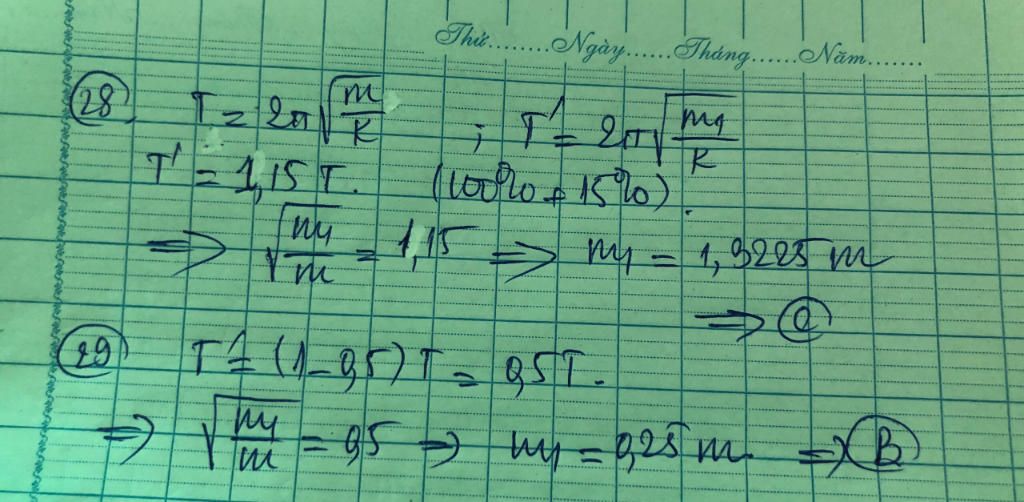 Thứ........Ngày......Tháng......Năm.......
28. T = 2π√(m/k) ; T' = 2π√(m1/k)
T' = 1,15 T. (100% + 15%).
=> √(m1/m) = 1,15 => m1 = 1,3225 m
=> C
29 T' = (1 - 0,5) T = 0,5T.
=> √(m1/m) = 0,5 => m1 = 0,25 m. => B